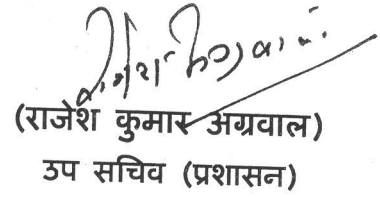 (राजेश कुमार अग्रवाल)
उप सचिव (प्रशासन)